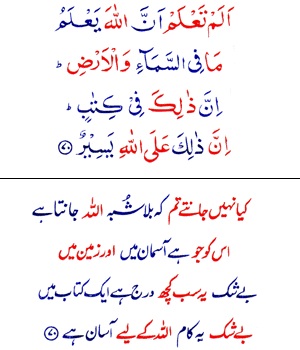 اَلَمْ تَعْلَمْ اَنَّ اللّٰهَ يَعْلَمُ
مَا فِى السَّمَآءِ وَالْاَرْضِ ؕ
اِنَّ ذٰلِكَ فِىْ كِتٰبٍ ؕ
اِنَّ ذٰلِكَ عَلَى اللّٰهِ يَسِيْرٌ ﴿۷۰﴾
کیا نہیں جانتے تم کہ بلاشُبہ اللہ جانتا ہے
اس کو جو ہے آسمان میں اور زمین میں
بے شک یہ سب کچھ درج ہے ایک کتاب میں
بے شک یہ کام اللہ کے لیے آسان ہے ﴿۷۰﴾